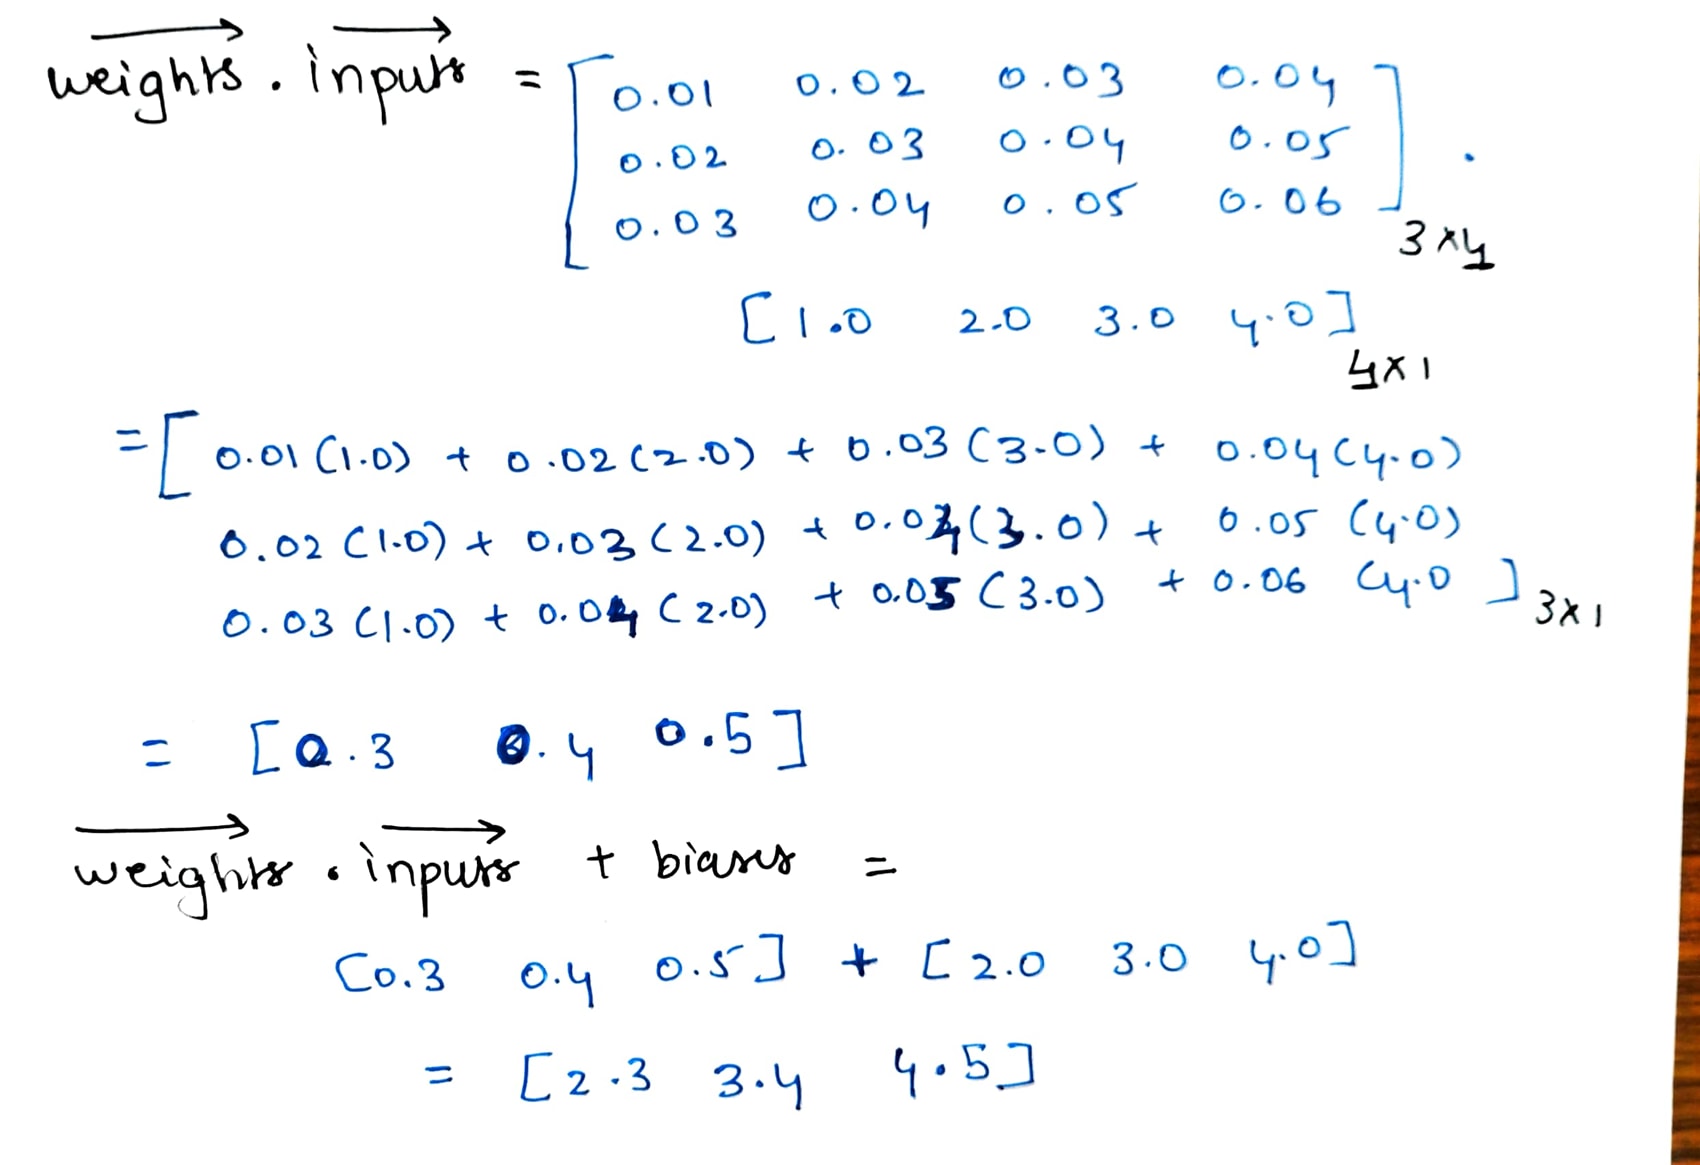 weights . inputs = [ 0.01 0.02 0.03 0.04
0.02 0.03 0.04 0.05
0.03 0.04 0.05 0.06 ] .
3×4
[ 1.0 2.0 3.0 4.0 ]
4×1
= [ 0.01 (1.0) + 0.02 (2.0) + 0.03 (3.0) + 0.04 (4.0)
0.02 (1.0) + 0.03 (2.0) + 0.04 (3.0) + 0.05 (4.0)
0.03 (1.0) + 0.04 (2.0) + 0.05 (3.0) + 0.06 (4.0 ] 3×1
= [ 0.3 0.4 0.5 ]
weights . inputs + biases =
[0.3 0.4 0.5 ] + [ 2.0 3.0 4.0 ]
= [ 2.3 3.4 4.5 ]